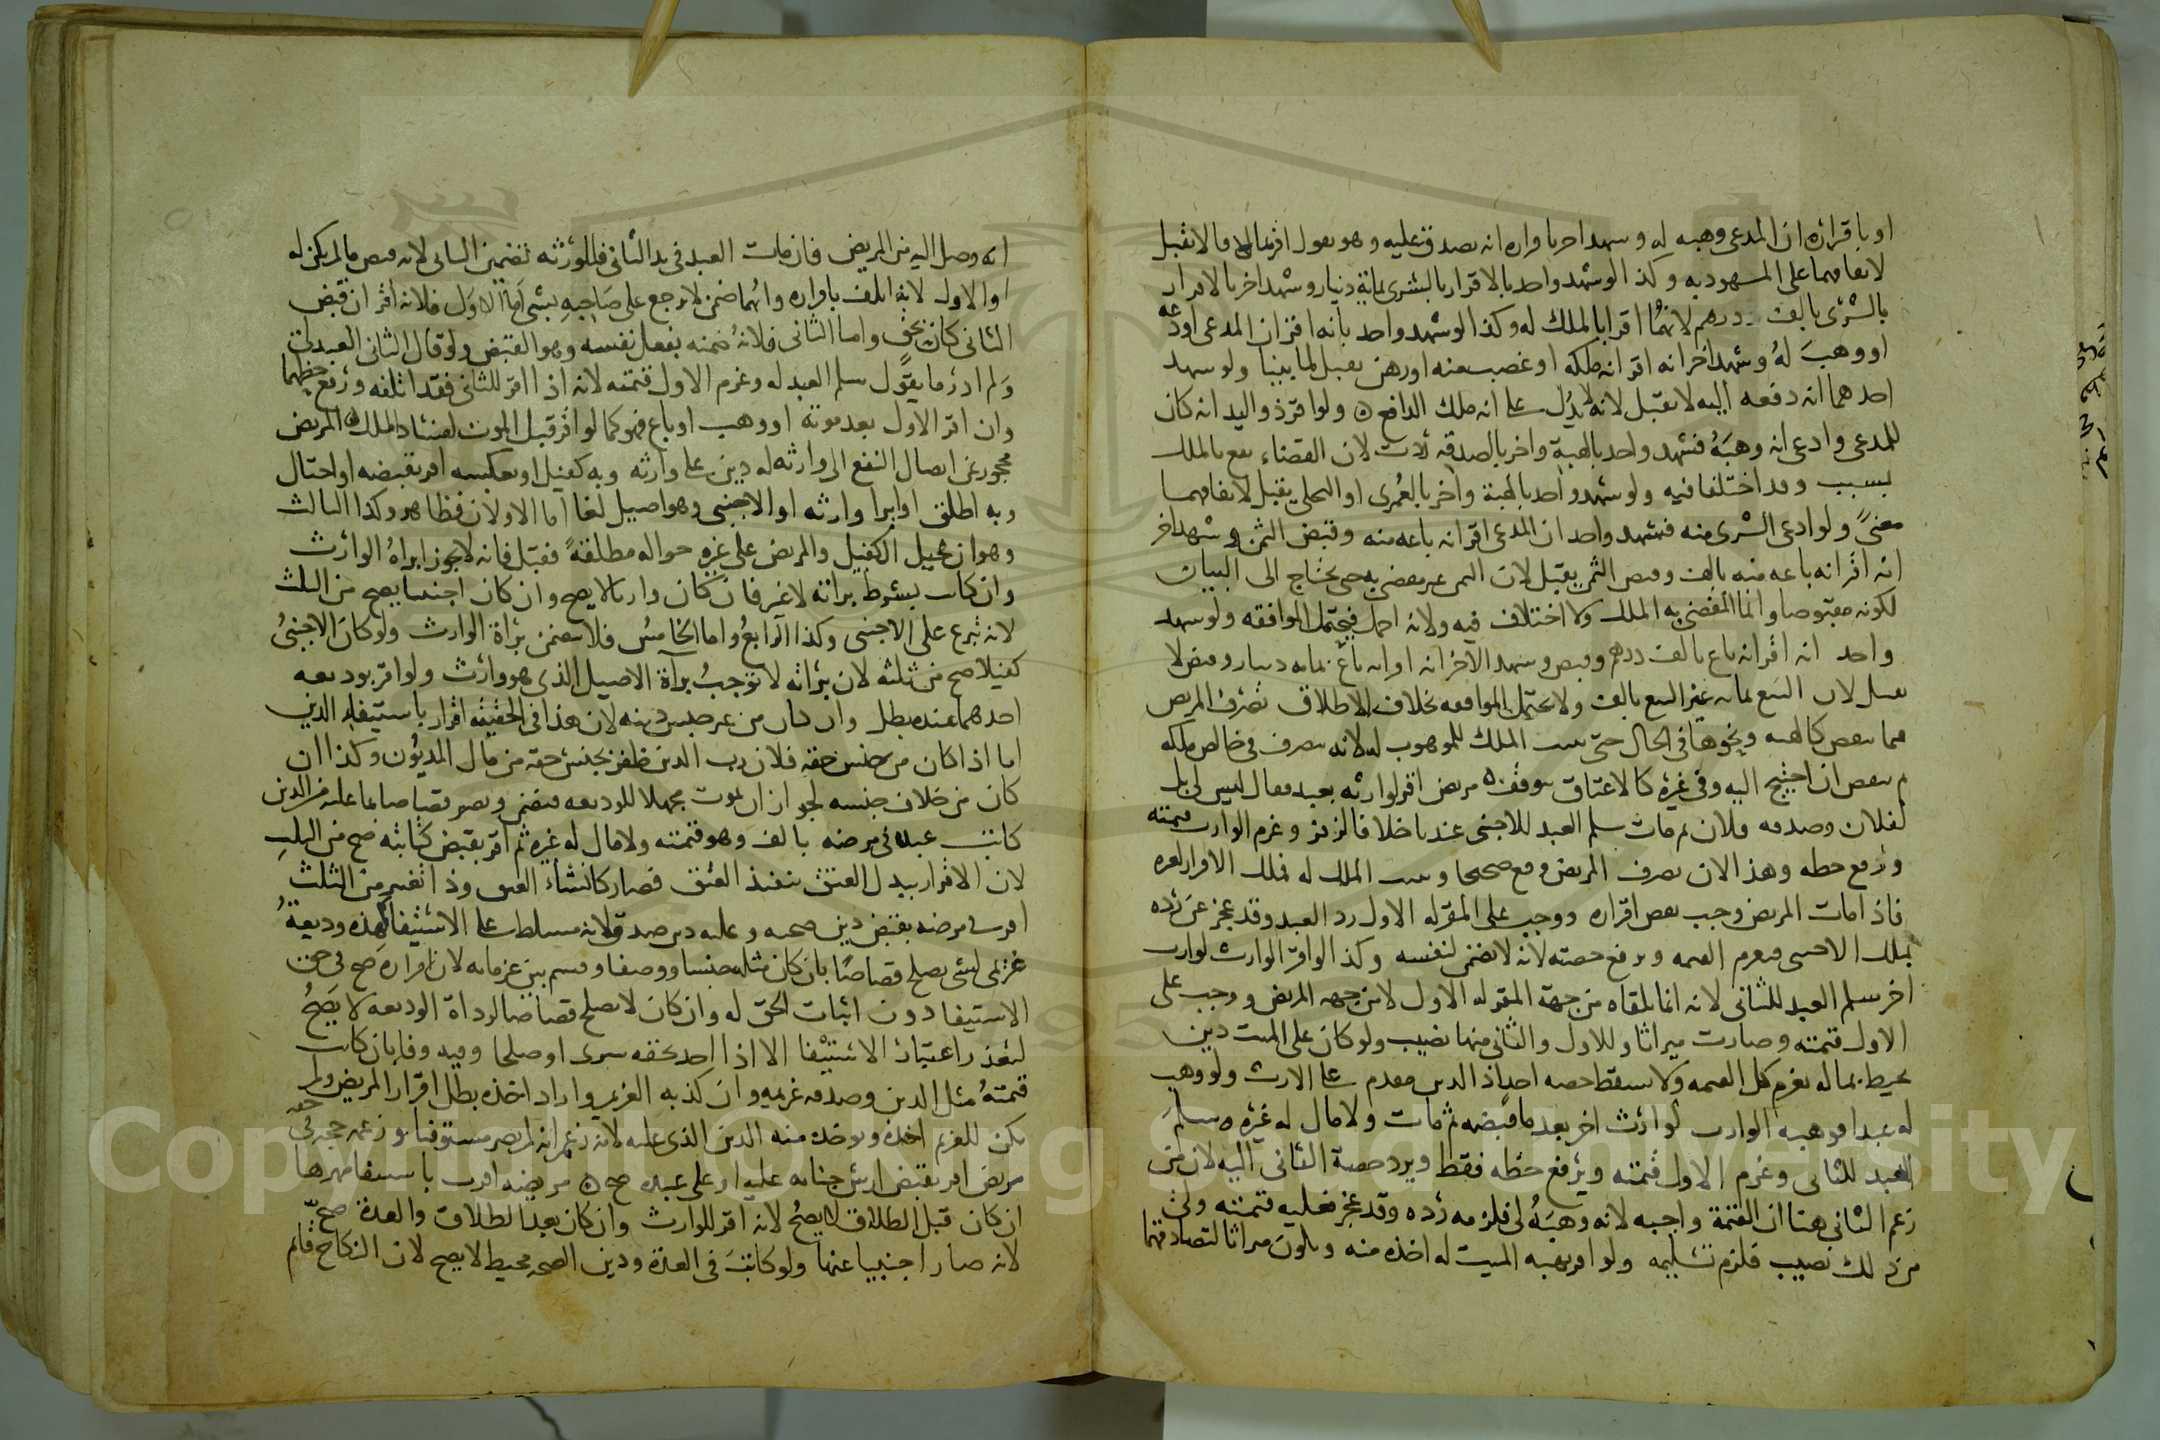 او باقراره ان المدعى وهبه له وشهد اخر باقراره انه تصدق عليه وهو يقول اقر بمال لا يقبل
لاتفاقهما على المشهود به وكذا لو شهد واحد بالاقرار بالشرى بماية دينار وشهد اخر بالاقرار
بالشرى بالف درهم لانهما اقرا بالملك له وكذا لو شهد واحد بانه اقر ان المدعى اودعه
او وهب له وشهد اخر انه اقر انه ملكه او غصب منه او رهن يقبل لما بينا ولو شهد
احدهما انه دفعه اليه لا يقبل لانه لا يدل على انه ملك الدافع ولو اقر ذو اليد انه كان
للمدعى وادعى انه وهبه فشهد واحد بالهبة واخر بالصدقه لان القضاء يقع بالملك
بسبب وقد اختلفا فيه ولو شهد واحد بالهبة واخر بالعمرى او النحلى يقبل لاتفاقهما
معنى ولو ادعى الشرى منه فشهد واحد ان المدعى اقر انه باعه منه وقبض الثمن وشهد اخر
انه اقر انه باعه منه بالف وقبض الثمن يقبل لان الثمن غير مقضى به حتى يحتاج الى البيان
لكونه مقبوضا وانما المقضى به الملك ولا اختلاف فيه ولانه اجمل فيحتمل الموافقه ولو شهد
واحد انه اقر انه باع بالف درهم وقبض وشهد الاخر انه اقر انه باع بمايه دينار وقبض لا
يقبل لان البيع بمايه غير البيع بالف ولا يحتمل الموافقه بخلاف الاطلاق تصرف المريض
فيما ينقص كالهبه ونحوها فى الحال حتى يثبت الملك للموهوب له لانه تصرف فى خالص ملكه
ثم ينقض ان احتيج اليه وفى غيره كالاعتاق يتوقف مريض اقر لوارثه بعبد فقال ليس لى بل
لفلان وصدقه فلان ثم مات سلم العبد للاجنبى عندنا خلافا لزفر وغرم الوارث قيمته
ورفع حظه وهذا لان تصرف المريض وقع صحيحا ويثبت الملك له فملك الاقرار لغيره
فاذا مات المريض وجب نقض اقراره ووجب على المقر له الاول رد العبد وقد عجز عن رده
بملك الاجنبى فيغرم القيمه ويرفع حصته لانه لا يضمن لنفسه وكذا لو اقر الوارث لوارث
اخر سلم العبد للثانى لانه انما تلقاه من جهة المقر له الاول لا من جهه المريض ووجب على
الاول قيمته وصارت ميراثا وللاول والثانى منها نصيب ولو كان على الميت دين
يحيط بماله يغرم كل القيمه ولا يسقط حصه احد اذ الدين مقدم على الارث ولو وهب
له عبدا فوهبه الوارث لوارث اخر بعد ما قبضه ثم مات ولا مال له غيره سلم
العبد للثانى وغرم الاول قيمته ويرفع حظه فقط ويرد حصة الثانى اليه لان من
زعم الثانى هنا ان القيمة واجبه لانه وهبه لى فلزمه رده وقد عجز فعليه قيمته ولى
من ذلك نصيب فلزم تسليمه ولو اقر بهبه الميت له اخذه منه ويكون ميراثا لتصادقهما
انه وصل اليه من المريض فان مات العبد فى يد الثانى فللورثه تضمين الثانى لانه قبض ما لم يكن له
او الاول لانه اتلف باقراره وايهما ضمن لا يرجع على صاحبه بشى اما الاول فلانه اقر ان قبض
الثانى كان بحق واما الثانى فلانه ضمنه بفعل نفسه وهو القبض ولو قال الثانى العبد لى
ولم ادر ما يقول سلم العبد له وغرم الاول قيمته لانه اذا اقر للثانى فقد اتلفه ورفع حظهما
وان اقر الاول بعد موته او وهب او باع فهو كما لو اقر قبل الموت لفساد الملك المريض
محجور عن ايصال النفع الى وارثه له دين على وارثه وبه كفيل او بعكسه اقر بقبضه او احتال
وبه اطلق او ابرا وارثه او الاجنبى وهو اصيل لغا اما الاولان فظاهر وكذا الثالث
وهو ان يحيل الكفيل والمريض على غيره حواله مطلقة فقبل فانه لا يجوز ابراه الوارث
وان كانت بشرط براته لا غير فان كان وارثا لا يصح وان كان اجنبيا يصح من الثلث
لانه تبرع على الاجنبى وكذا الرابع واما الخامس فلا يتضمن براة الوارث ولو كان الاجنبى
كفيلا صح من ثلثه لان براته لا توجب براة الاصيل الذى هو وارث ولو اقر بوديعه
احدهما عنده بطل وان كان من غير جنس دينه لان هذا فى الحقيقه اقرار باستيفا الدين
اما اذا كان من جنس حقه فلان رب الدين ظفر بجنس حقه من مال المديون وكذا ان
كان من خلاف جنسه لجواز ان يموت مجهلا للوديعه فيضمن ويصير قصاصا بما عليه من الدين
كاتب عبده فى مرضه بالف وهو قيمته ولا مال له غيره ثم اقر بقبض كتابته صح من الثلث
لان الاقرار ببدل العتق تنفيذ العتق فصار كانشاء العتق وذا يعتبر من الثلث
اقر فى مرضه بقبض دين صحته وعليه دين صدق لانه مسلط على الاستيفاء لهذه وديعة
غريمى لشى يصلح قصاصا بان كان مثله جنسا ووصفا وقسم بين غرمايه لان اقراره صح فى حق
الاستيفا دون اثبات الحق له وان كان لا يصلح قصاصا لرداة الوديعه لا يصح
لتعذر اعتبار الاستيفا الا اذا اتحد بحقه سرى او صلحا وفيه وفا بان كانت
قيمته مثل الدين وصدقه غريمه وان كذبه الغريم واراد اخذه بطل اقرار المريض ولم
يكن للغريم اخذه ويوخذ منه الدين الذى عليه لانه زعم انه لم يصر مستوفيا وزعمه حجه فى حقه
مريض اقر بقبض ارش جنايه عليه او على عبده صح مريضه اقرت باستيفا مهرها
ان كان قبل الطلاق لا يصح لانه اقر للوارث وان كان بعد الطلاق والعدة صح
لانه صار اجنبيا عنها ولو كانت فى العدة ودين الصحه محيط لا يصح لان النكاح قائم
Copyright © King Saud University